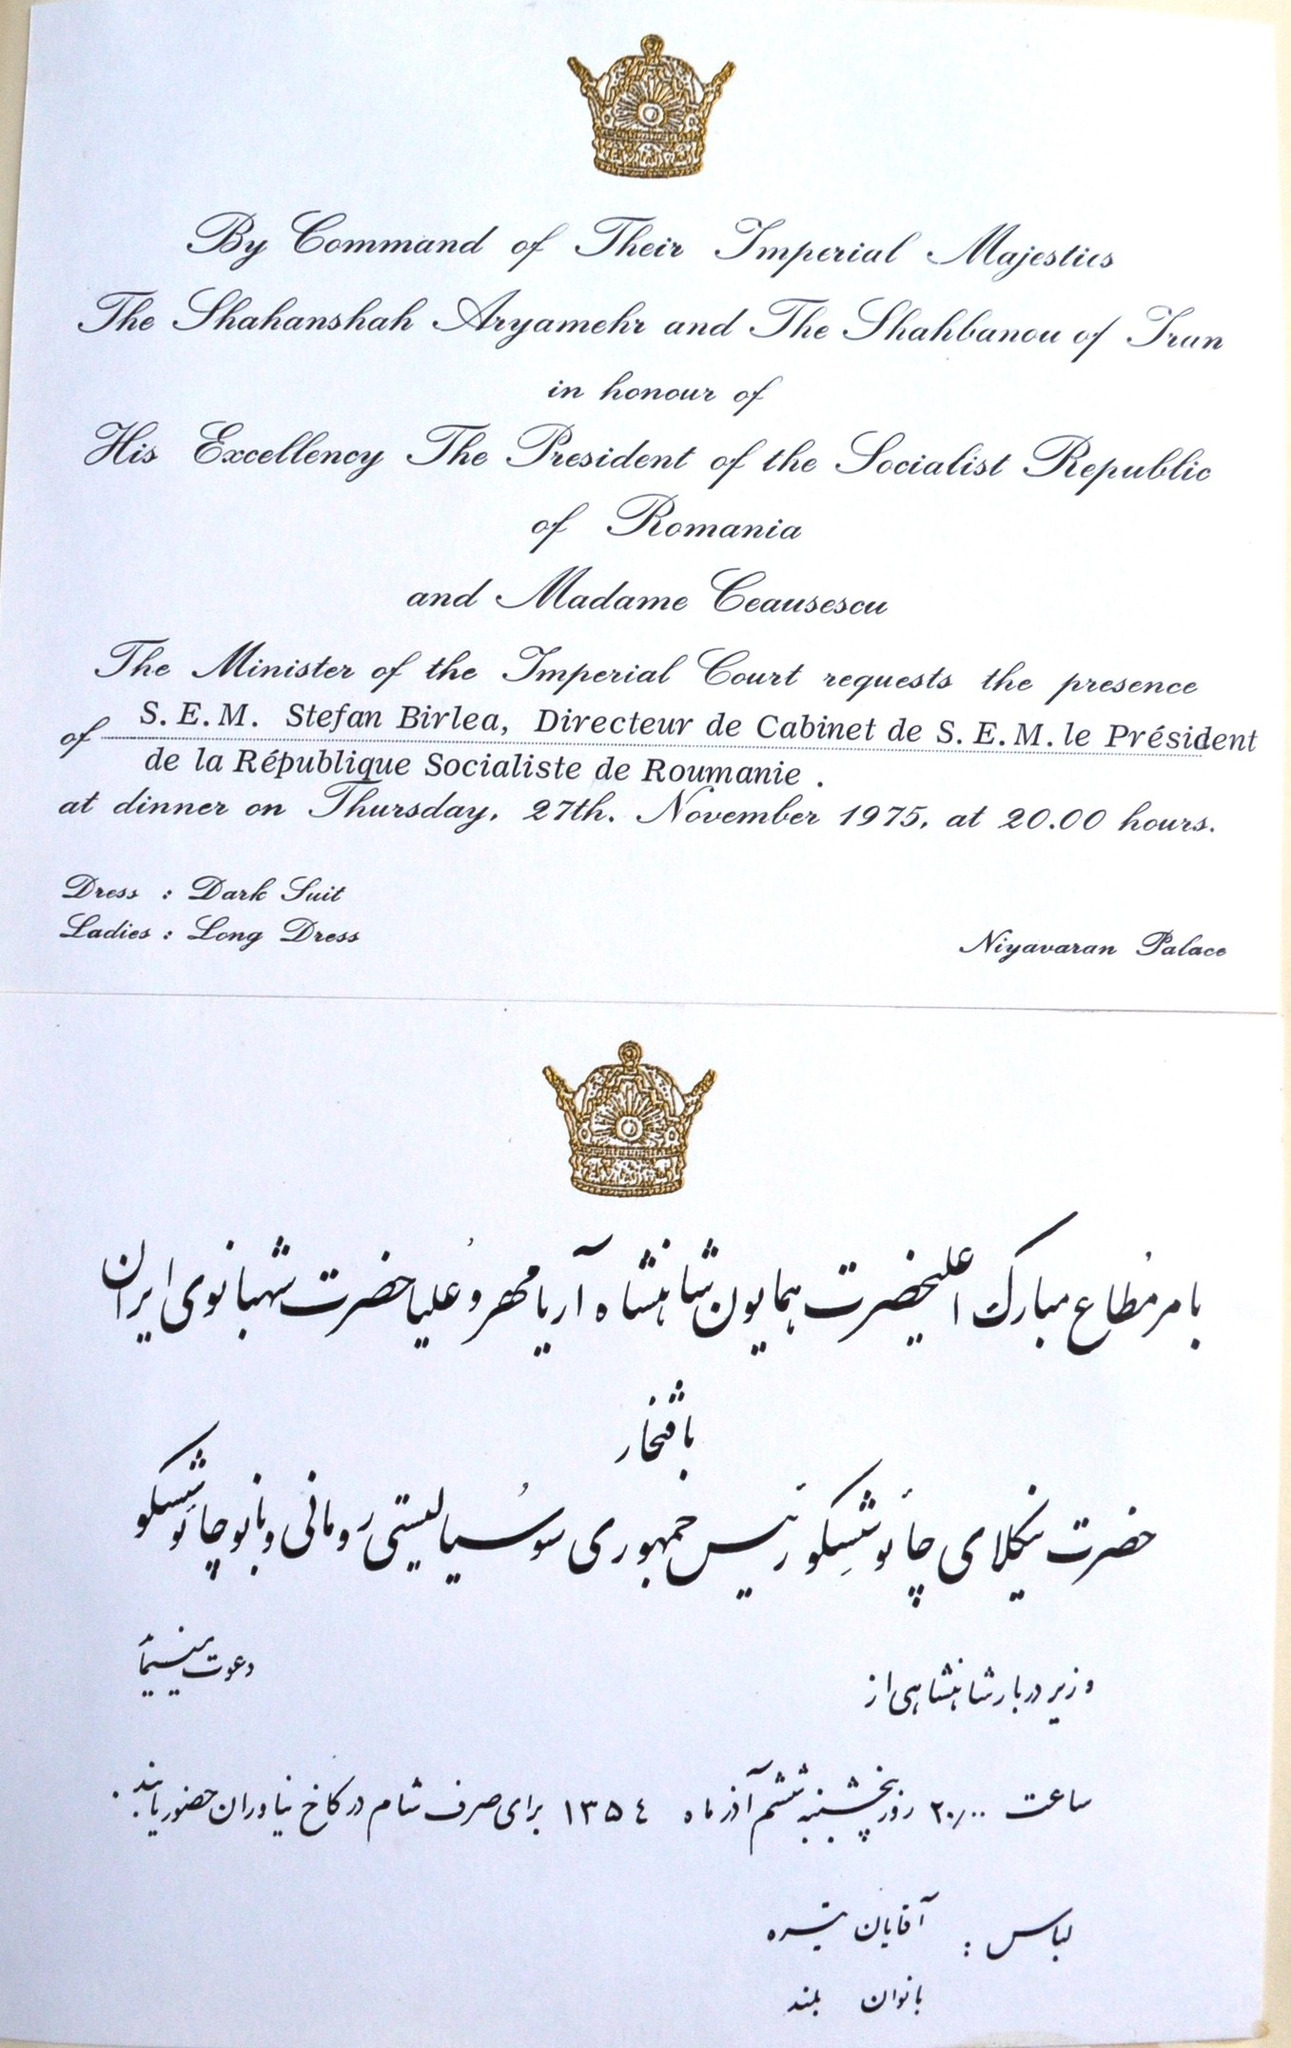 By Command of Their Imperial Majesties
The Shahanshah Aryamehr and The Shahbanou of Iran
in honour of
His Excellency The President of the Socialist Republic
of Romania
and Madame Ceausescu
The Minister of the Imperial Court requests the presence
of S. E. M. Stefan Birlea, Directeur de Cabinet de S. E. M. le Président
de la République Socialiste de Roumanie .
at dinner on Thursday, 27th. November 1975, at 20.00 hours.
Dress : Dark Suit
Ladies : Long Dress
Niyavaran Palace
بامر مُطاع مبارک اعلیحضرت همایون شاهنشاه آریامهر و عُلیاحضرت شهبانوی ایران
بافتخار
حضرت نیکلای چائوشسِکو رئیس جمهوری سوُسیالیستی رومانی و بانو چائوشسکو
وزیر دربار شاهنشاهی از دعوت مینماید
ساعت ۲۰٫۰۰ روز پنجشنبه ششم آذر ماه ۱۳۵٤ برای صرف شام در کاخ نیاوران حضور یابند .
لباس : آقایان تیره
بانوان بلند